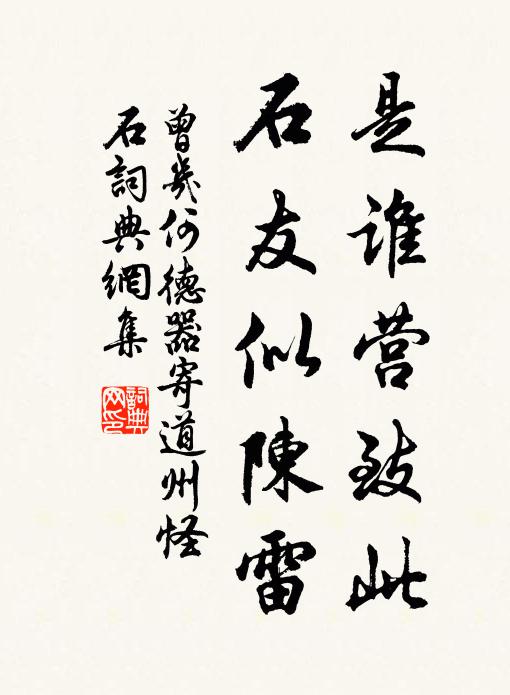 是谁营致此
石友似陳雷
曾幾何德器寄道州怪
石詞典網集
詞典
网印